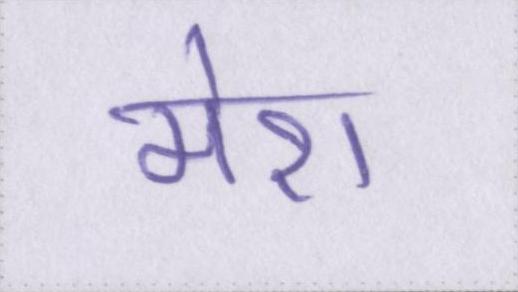 मेरा